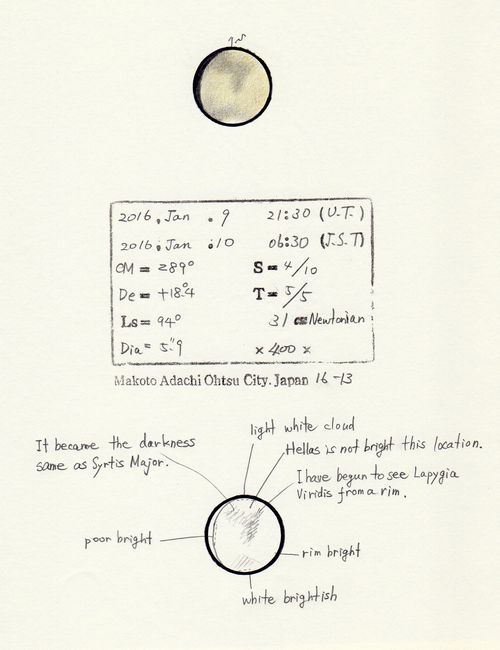 2016, Jan . 9 21:30 (U.T.)
2016, Jan . 10 06:30 (J.S.T)
CM = 289° S = 4/10
De = +18.4° T = 5/5
Ls = 94° 31 cm Newtonian
Dia = 5."9 × 400 ×
Makoto Adachi Ohtsu City. Japan 16-13
light white cloud
It became the darkness
same as Syrtis Major.
Hellas is not bright this location.
I have begun to see Lapygia
Viridis from a rim.
poor bright
rim bright
white brightish